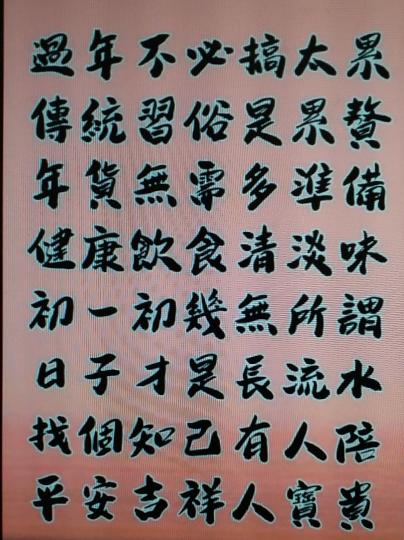 過年不必搞太累
傳統習俗是累贅
年貨無需多準備
健康飲食清淡味
初一初幾無所謂
日子才是長流水
找個知己有人陪
平安吉祥人寶貴